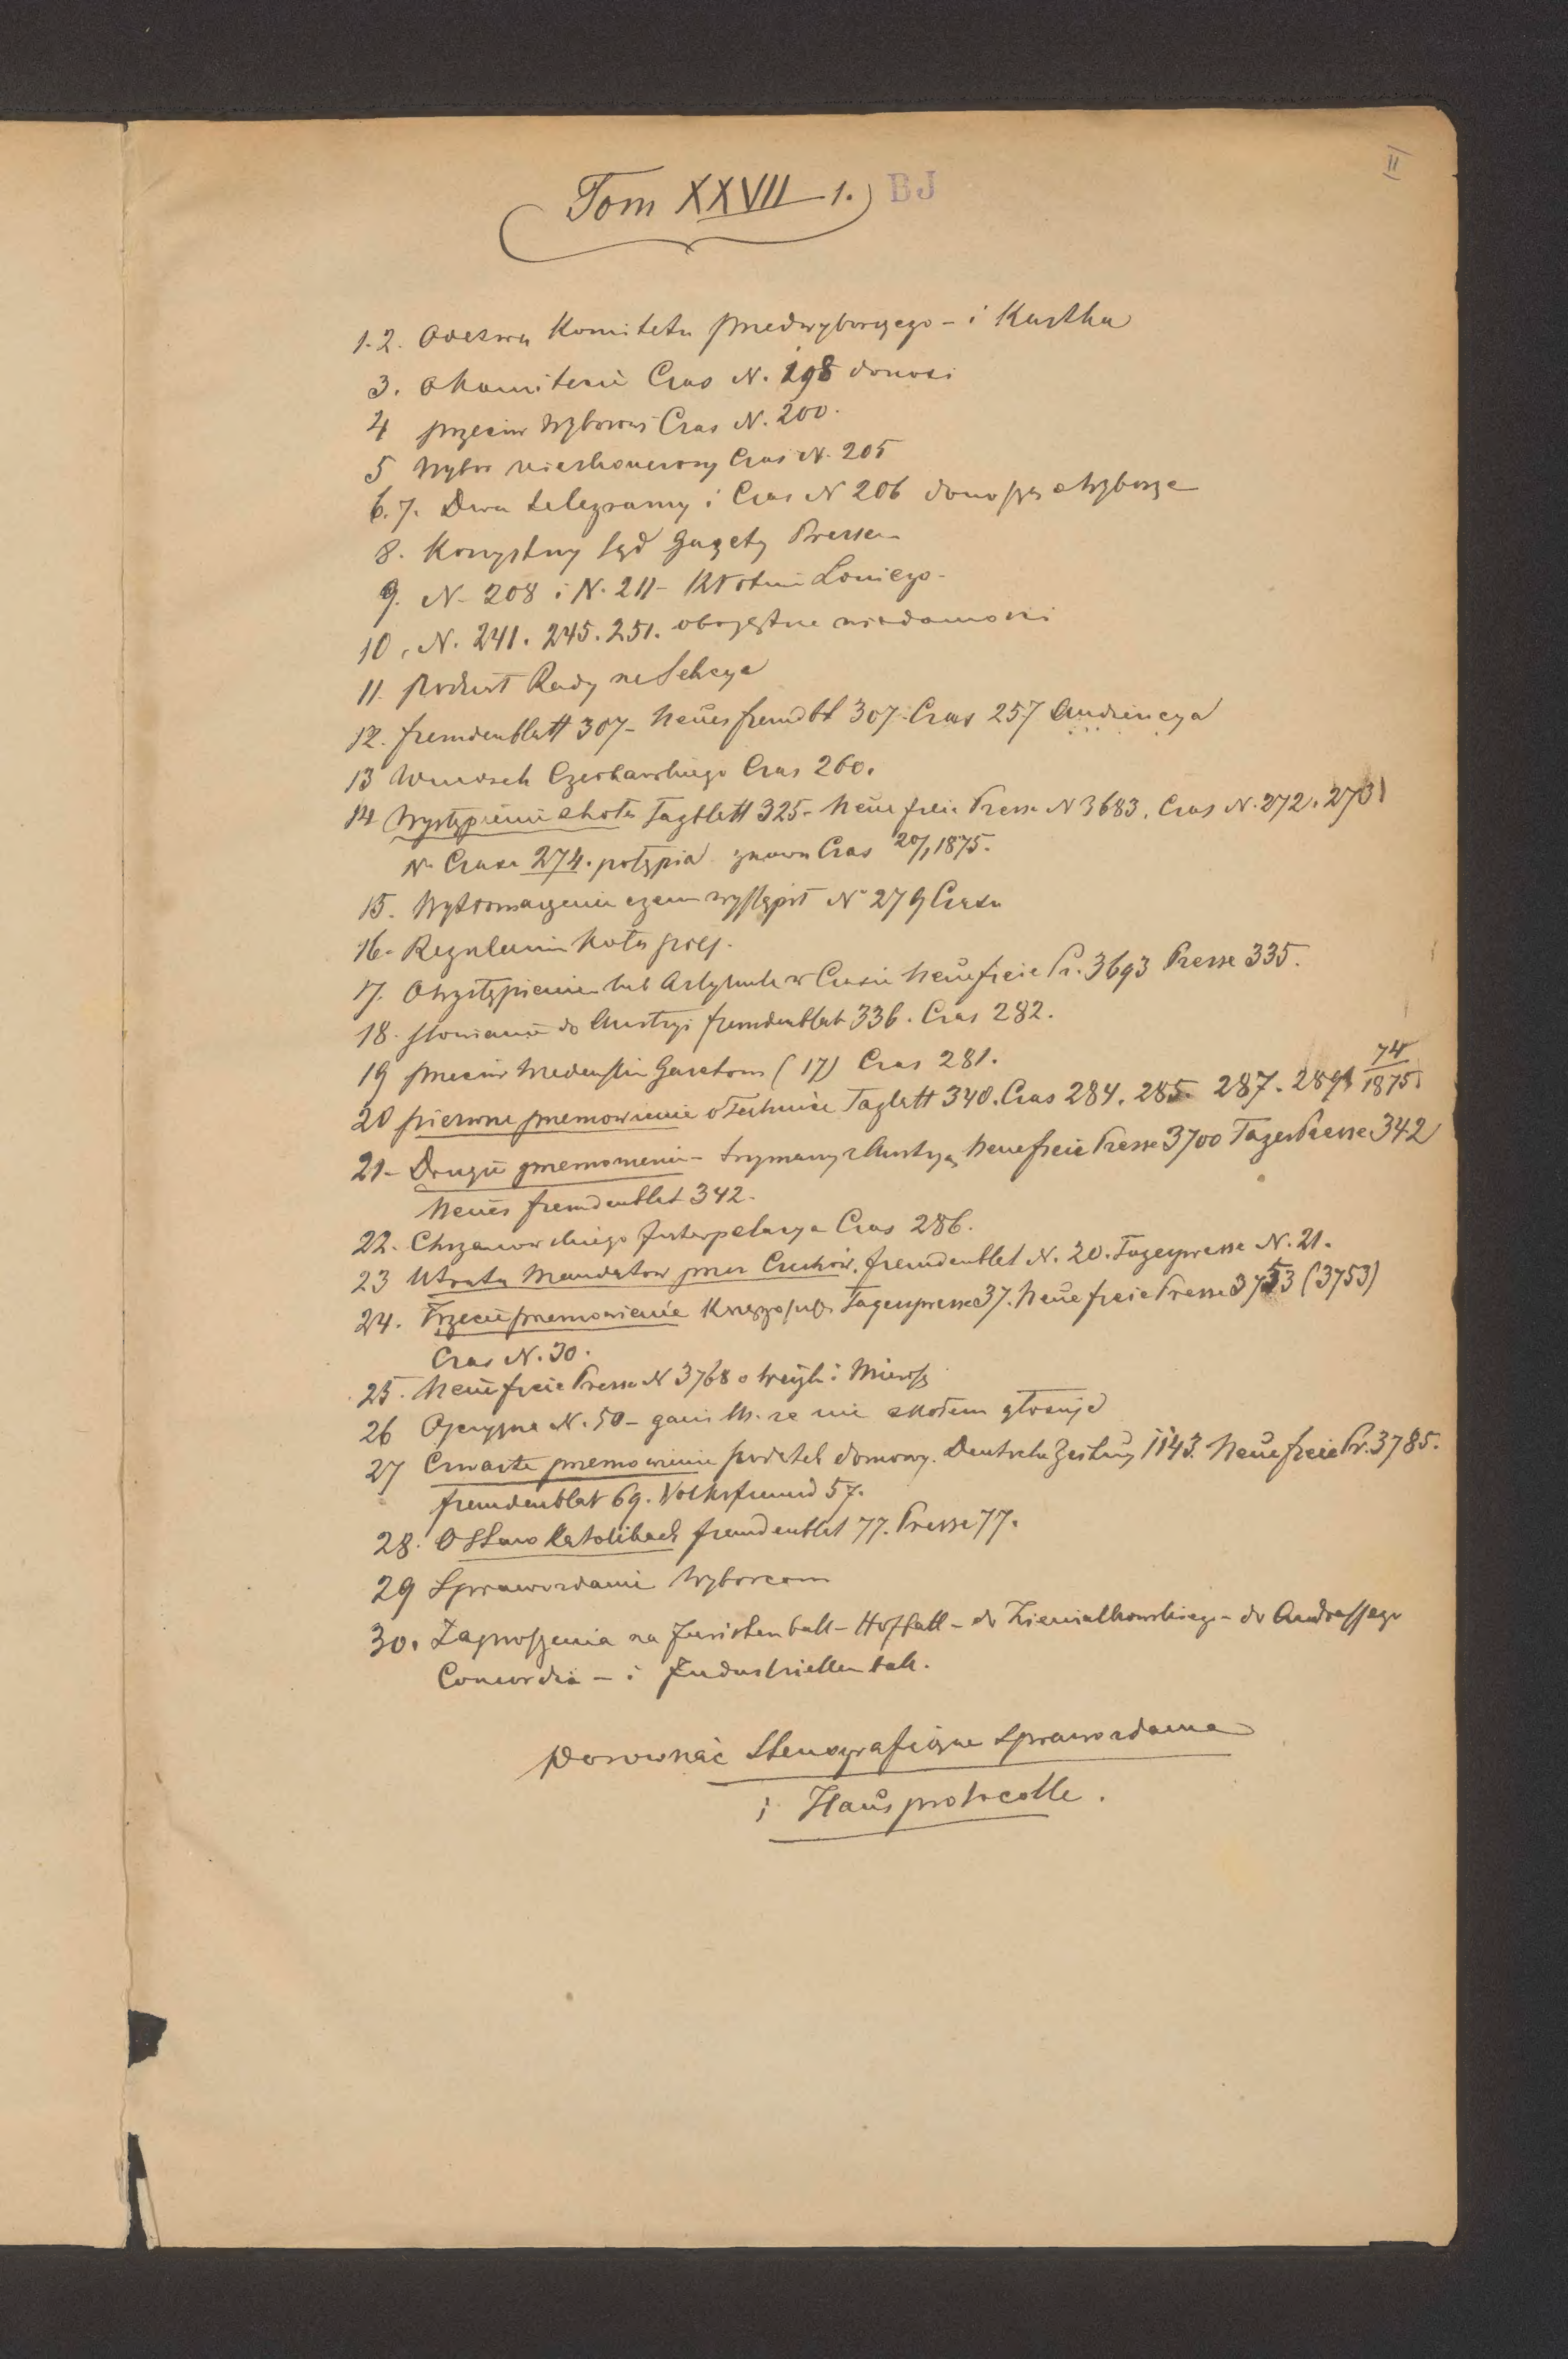 II
Tom XXVII 1. BJ
1.2. Odezwa Komitetu przedwyborczego - i Kartka
3. o Komitecie Czas N. 198 donosi
4 przeciw wyborowi Czas N. 200.
5 Wybór nieskończony Czas N. 205
6.7. Dwa telegramy i Czas N 206 donoszą o wyborze
8. Korzystny sąd gazety Presse
9. N. 208 i N. 211 -
10. N. 241. 245. 251. obojętne wiadomości
11. Podział Rady na Sekcye
12. Fremdenblatt 307 - Neues Fremdbl 307. Czas 257 Audiencya
13 Wniosek Czerkawskiego Czas 260.
14 Wystąpienie z Koła Tagblatt 325 - Neue freie Presse N 3683. Czas N. 272. 273
Nr Czasu 274. potępia znowu Czas 20/1 1875.
15. Wytłomaczenie czem wystąpił Nr 279 Czasu
16. Regulamin Koła pols.
17. O wystąpieniu lub Artykule w Czasie Neue freie Pr. 3693 Presse 335.
18. Słowianie do Austryi Fremdenblatt 336. Czas 282.
19 przeciw Wiedeńskim Gazetom (17) Czas 281.
20 pierwsze przemowienie o Technice Tagblatt 340. Czas 284. 285. 287. 289 74/1875
21 - Drugie przemowienie - trzymamy z Austryą Neue freie Presse 3700 Tages Presse 342
Neues Fremdenblat 342.
22. Chrzanowskiego Interpelacya Czas 286.
23 Utrata Mandatow przez Czechów. Fremdenblat N. 20. Tagespresse N. 21.
24. Trzecie przemowienie Tagespresse 37. Neue freie Presse 3753 (3753)
Czas N. 30.
25. Neue freie Presse N 3768 o
26 Ojczyzna N. 50 - gani M. ze nie z Kołem głosuje
27 Czwarte przemowienie podatek domowy. Deutsche Zeitung 1143. Neue freie Pr. 3785.
Fremdenblat 69. Volksfreund 57.
28. O Staro Katolikach Fremdenblat 77. Presse 77.
29 Sprawozdanie Wyborcom
30. Zaproszenia na Juristen ball - Hofball - do Ziemialkowskiego - do Andrassego
Concordia - i Industriellen ball.
porownać Stenograficzne Sprawozdania
i Haus protocolle.